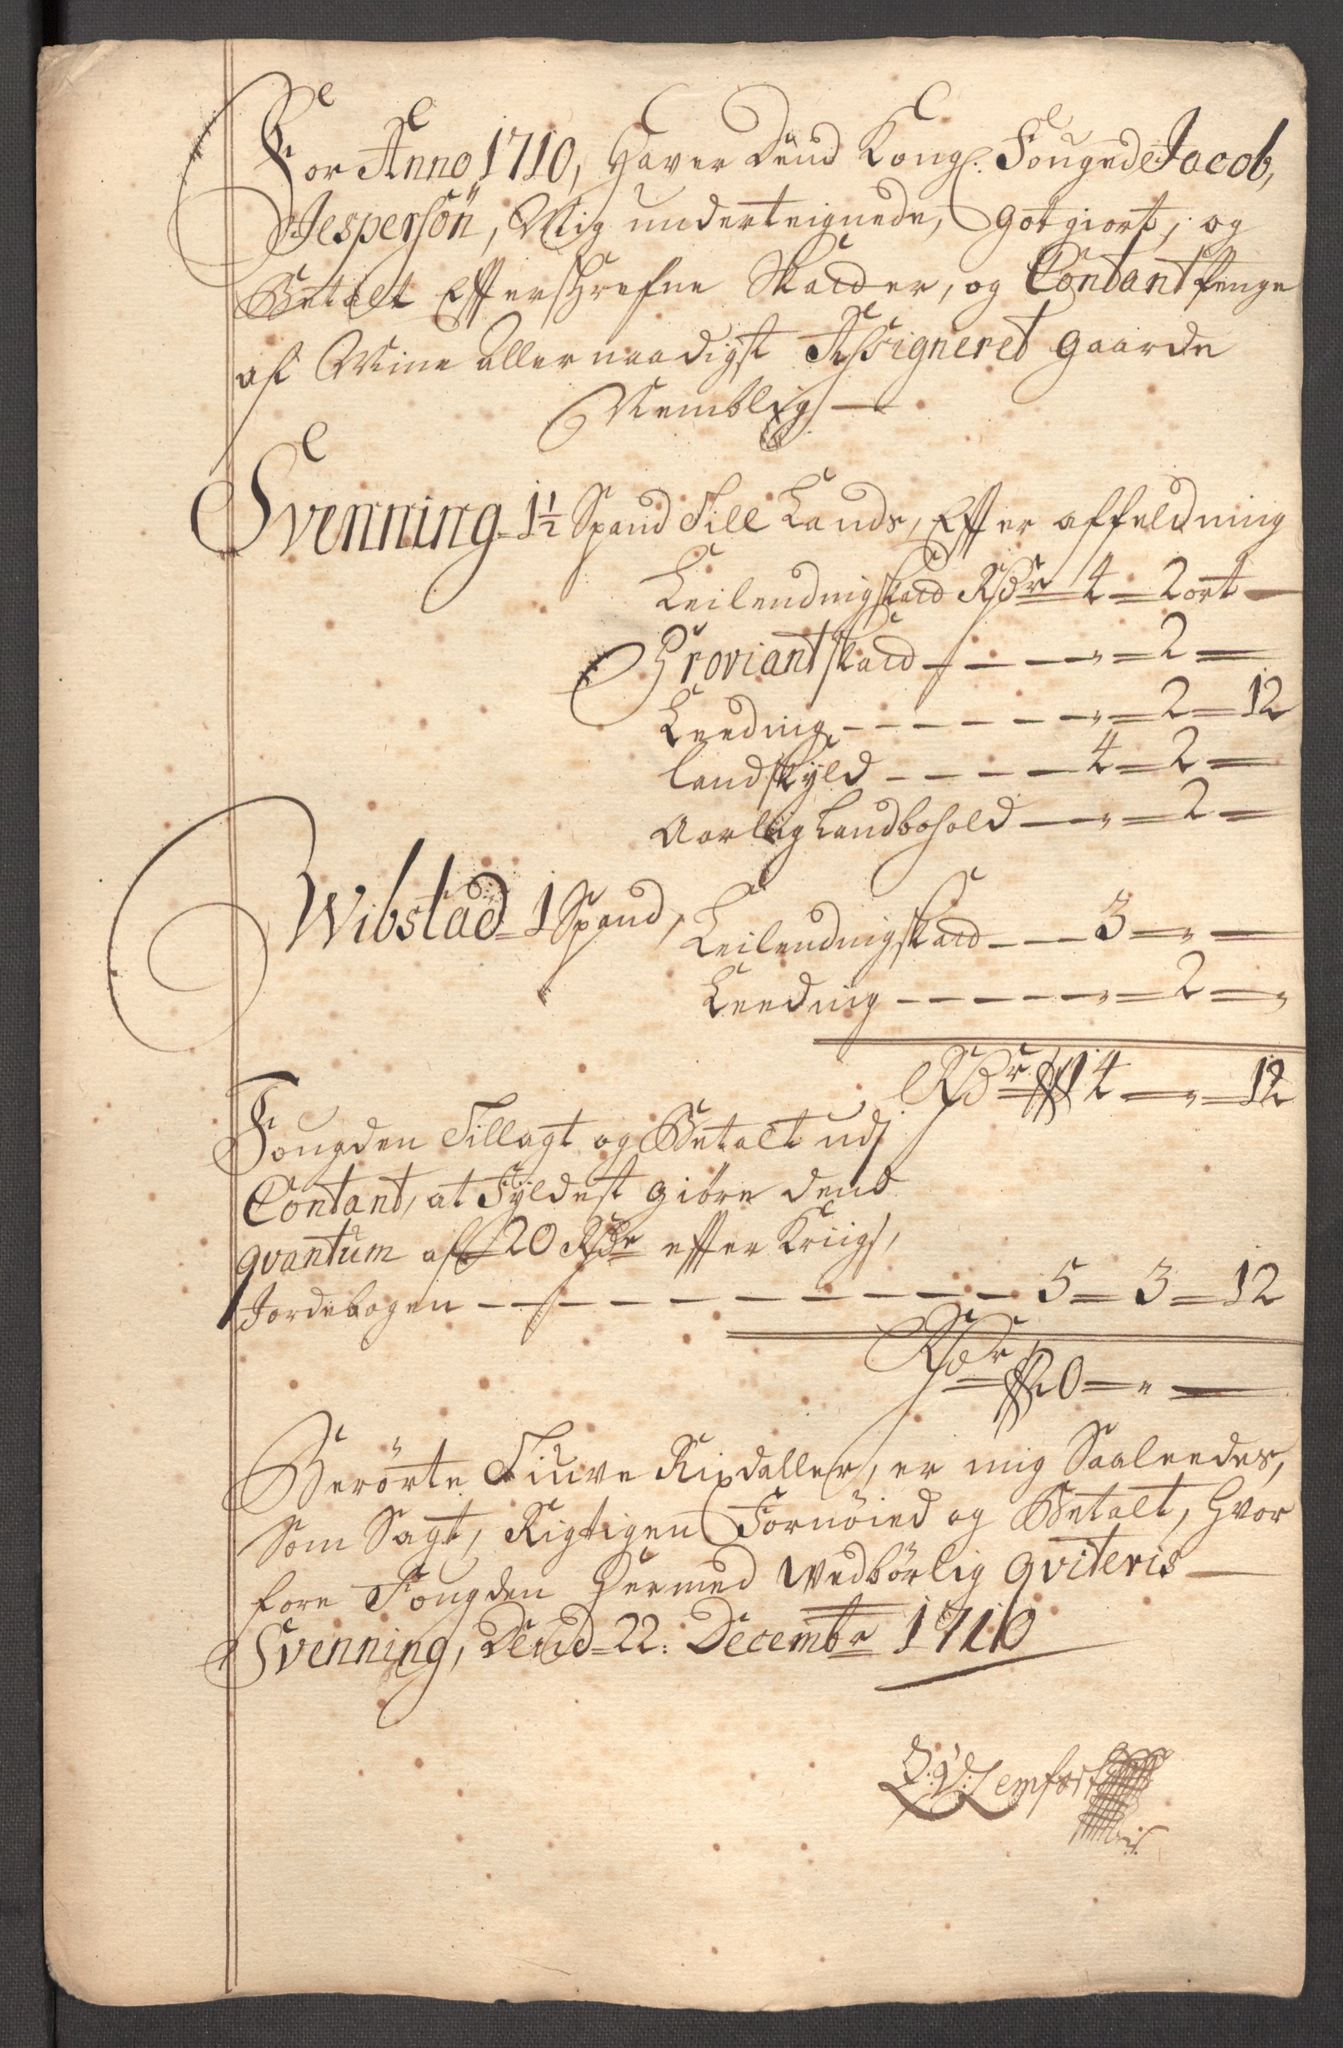 For Anno 1710, Haver Dend Kongl. Fouged Jacob,
Jespersøn, Mig underteignede, Godtgiort, og
Betalt Effterschrefne Skatder, og Contant Penge
af Mine allernaadigst Assigneret gaarde
Nemblig —
Svenning - 1½ Spand Till Lands, Effter affeldning
Leilendnigskatd Rdr 4 = 2 ort —
Proviantskatd - - - - „ = 2 =
Leeding - - - - - - „ = 2 = 12
Landskyld - - - - 4 = 2 =
Aarlig Landbohold — „ = 2 =
Wibstad - 1 Spand,
Leilendnigskatd - - 3 = „ =
Leeding - - - - - - „ = 2 = „
Rdr 14 — „ = 12
Fougden Tillagt og Betalt udj
Contant, at Fyldest giøre dend
qvantum af 20 Rdr effter Kriigs,
Jordebogen - - - - - - - - - 5 = 3 = 12
Rdr 20 = „ =
Berørte Tiuve Rixdaller, er mig Saaleedes,
Som Sagt, Rigtigen Fornøied og Betalt, hvor
fore Fougden Hermed Wedbørlig qviteris —
Svenning, Dend = 22: Decembr 1710